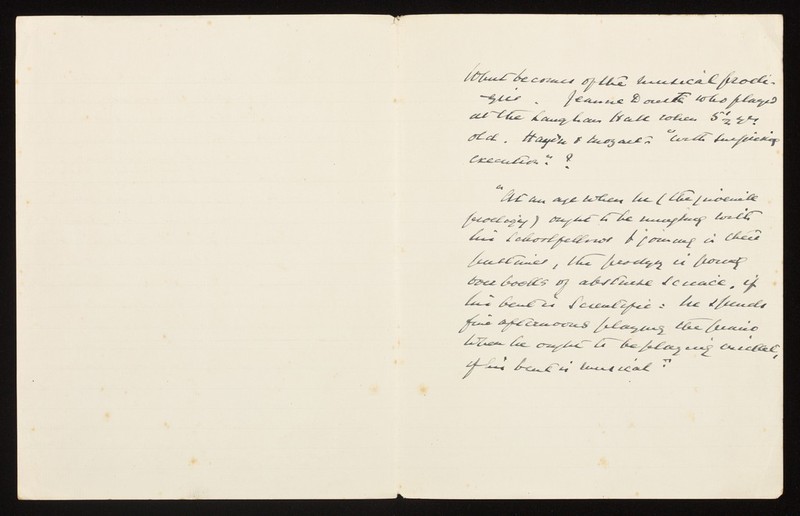 What becomes of the musical prodi-
gies. Jeanne Douste who played
at the Langham Hall when 5½ yrs
old. Haydn & Mozart "with surprising
execution". ?
"At an age when he (the juvenile
prodigy) ought to be mingling with
his schoolfellows & joining in their
pastimes, the prodigy is poring
over books of abstruse science, if
his bent is scientific: he spends
fine afternoons playing the piano
when he ought to be playing cricket,
if his bent is musical."